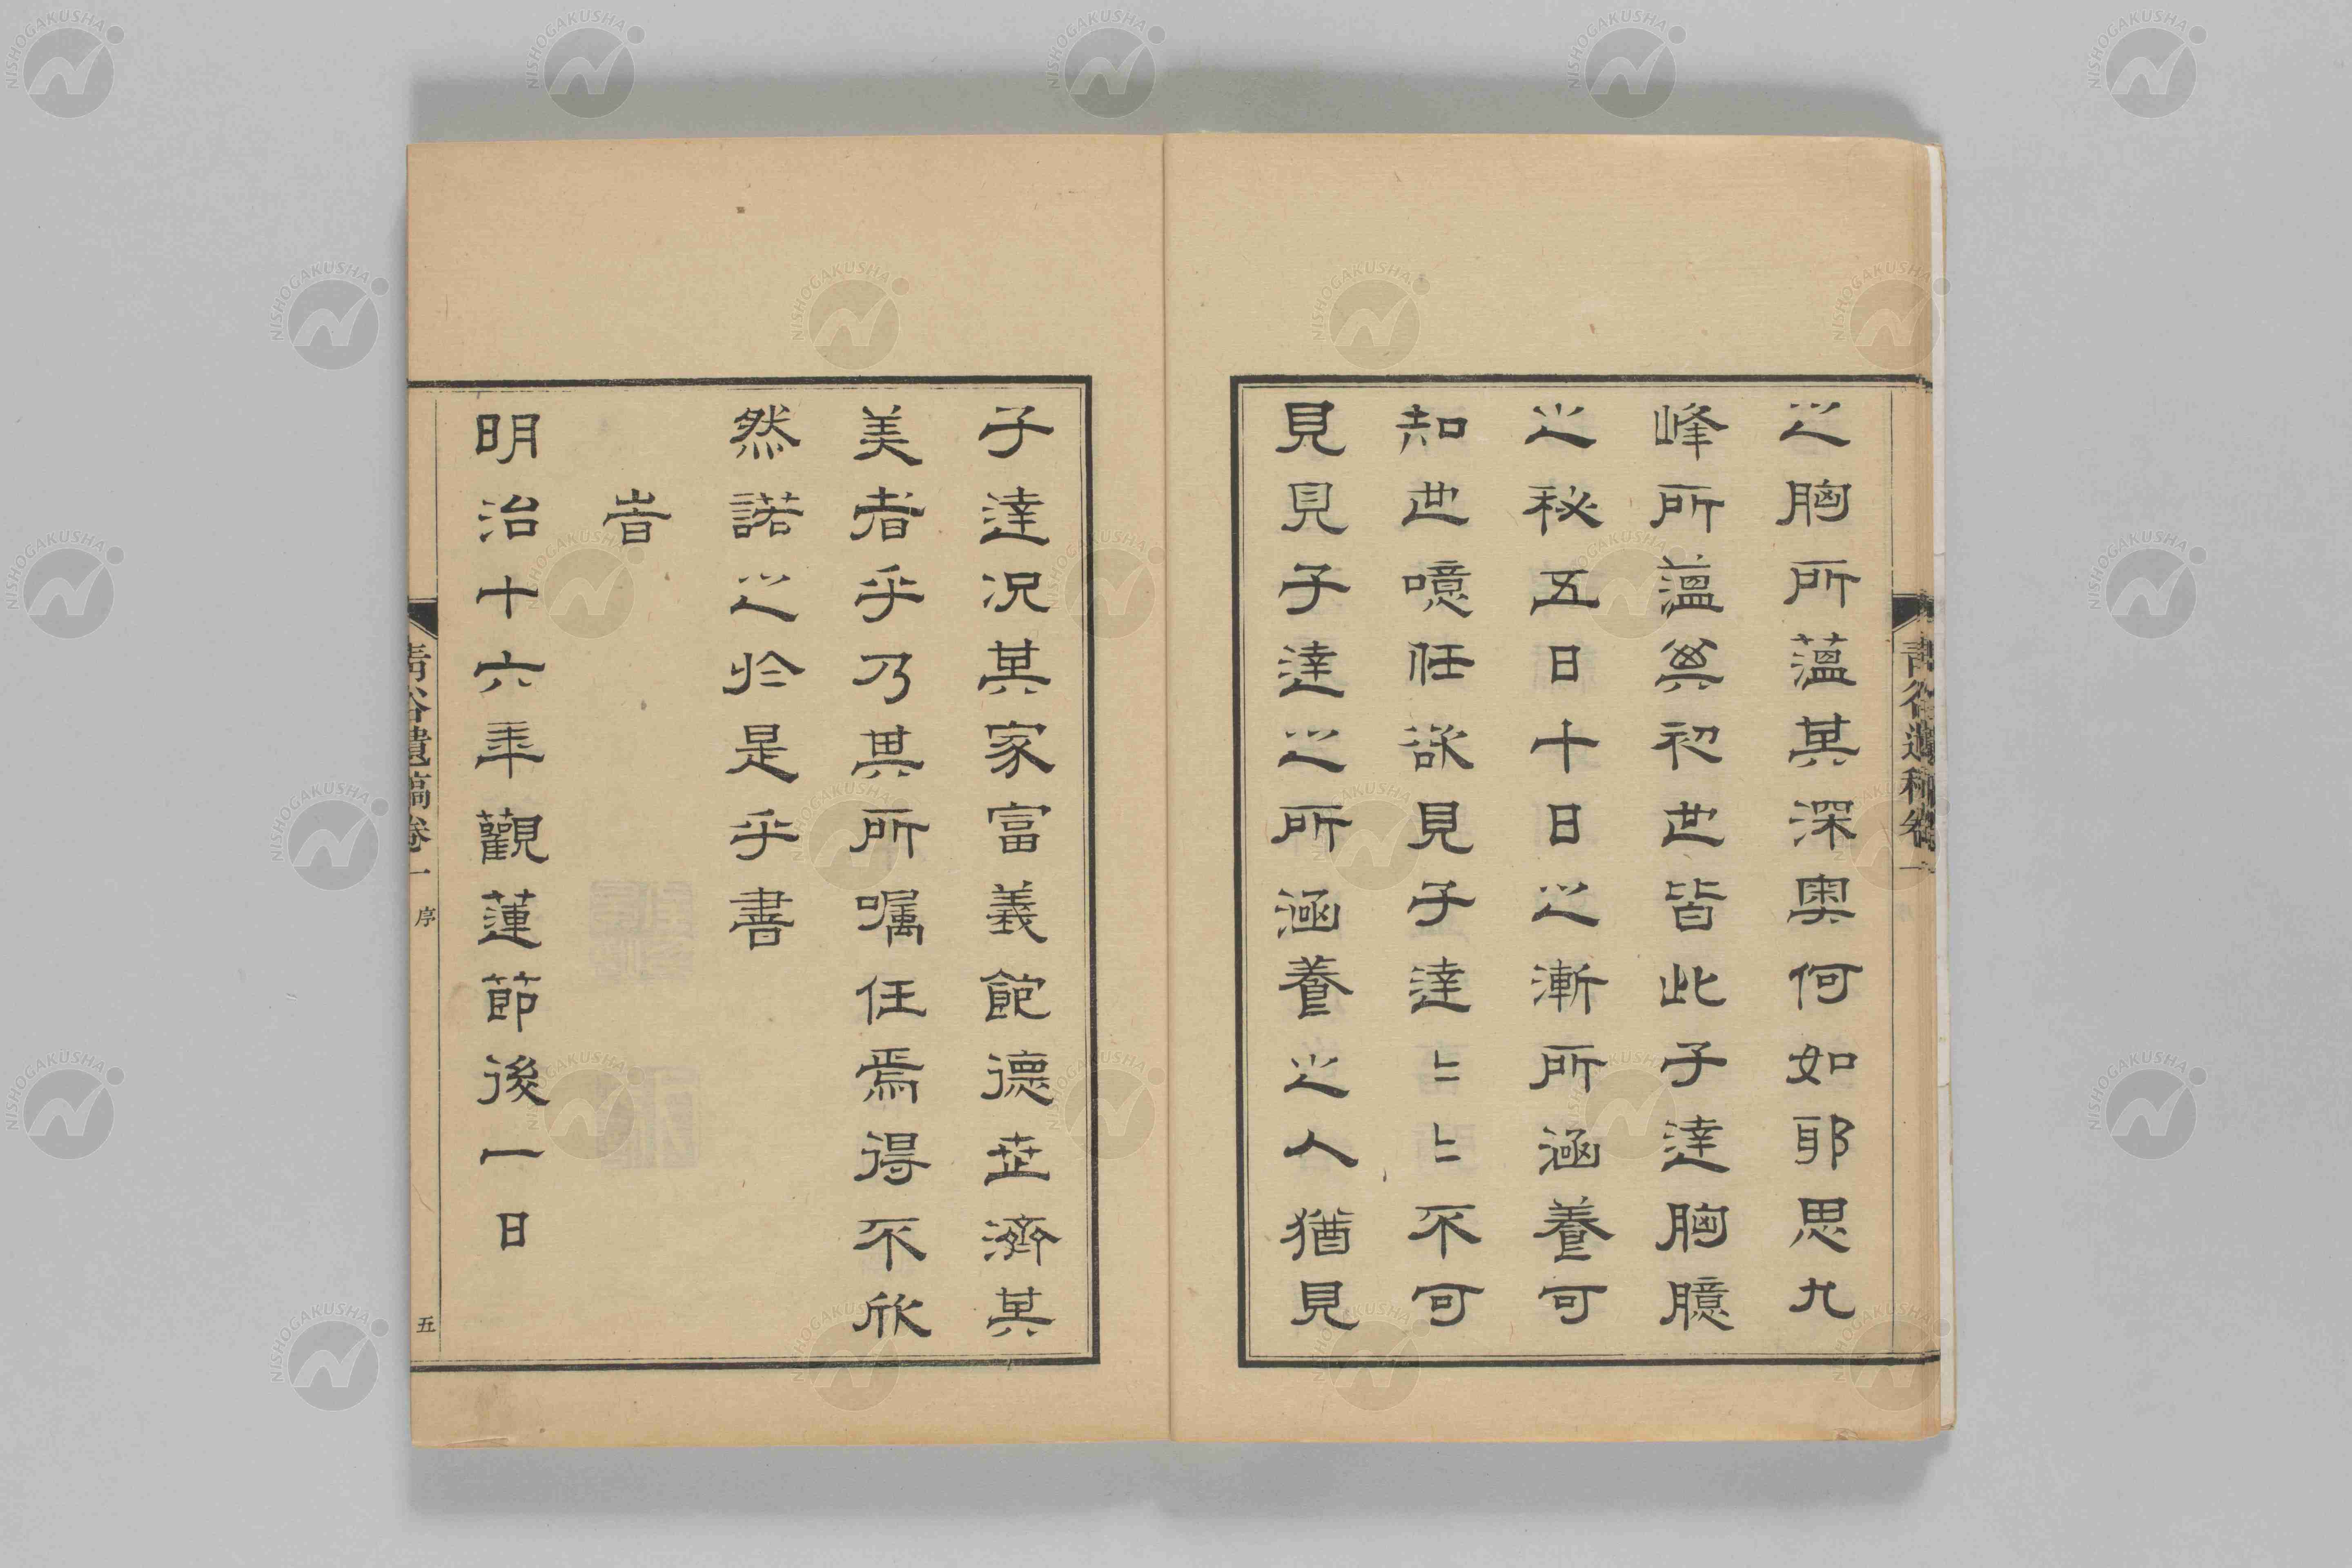 之胸所薀其深奧何如耶思九
峰所薀與初世皆此子達胸臆
之秘五日十日之漸所涵養可
知世噫任欲見子達〻〻不可
見見子達之所涵養之人猶見
子達况其家富義飽德世濟其
美者乎乃其所嘱任焉得不欣
然諾之於是乎書
時
明治十六年觀蓮節後一日
青谷遺稿卷一
序
五
青谷遺稿卷一
NISHOGAKUSHA